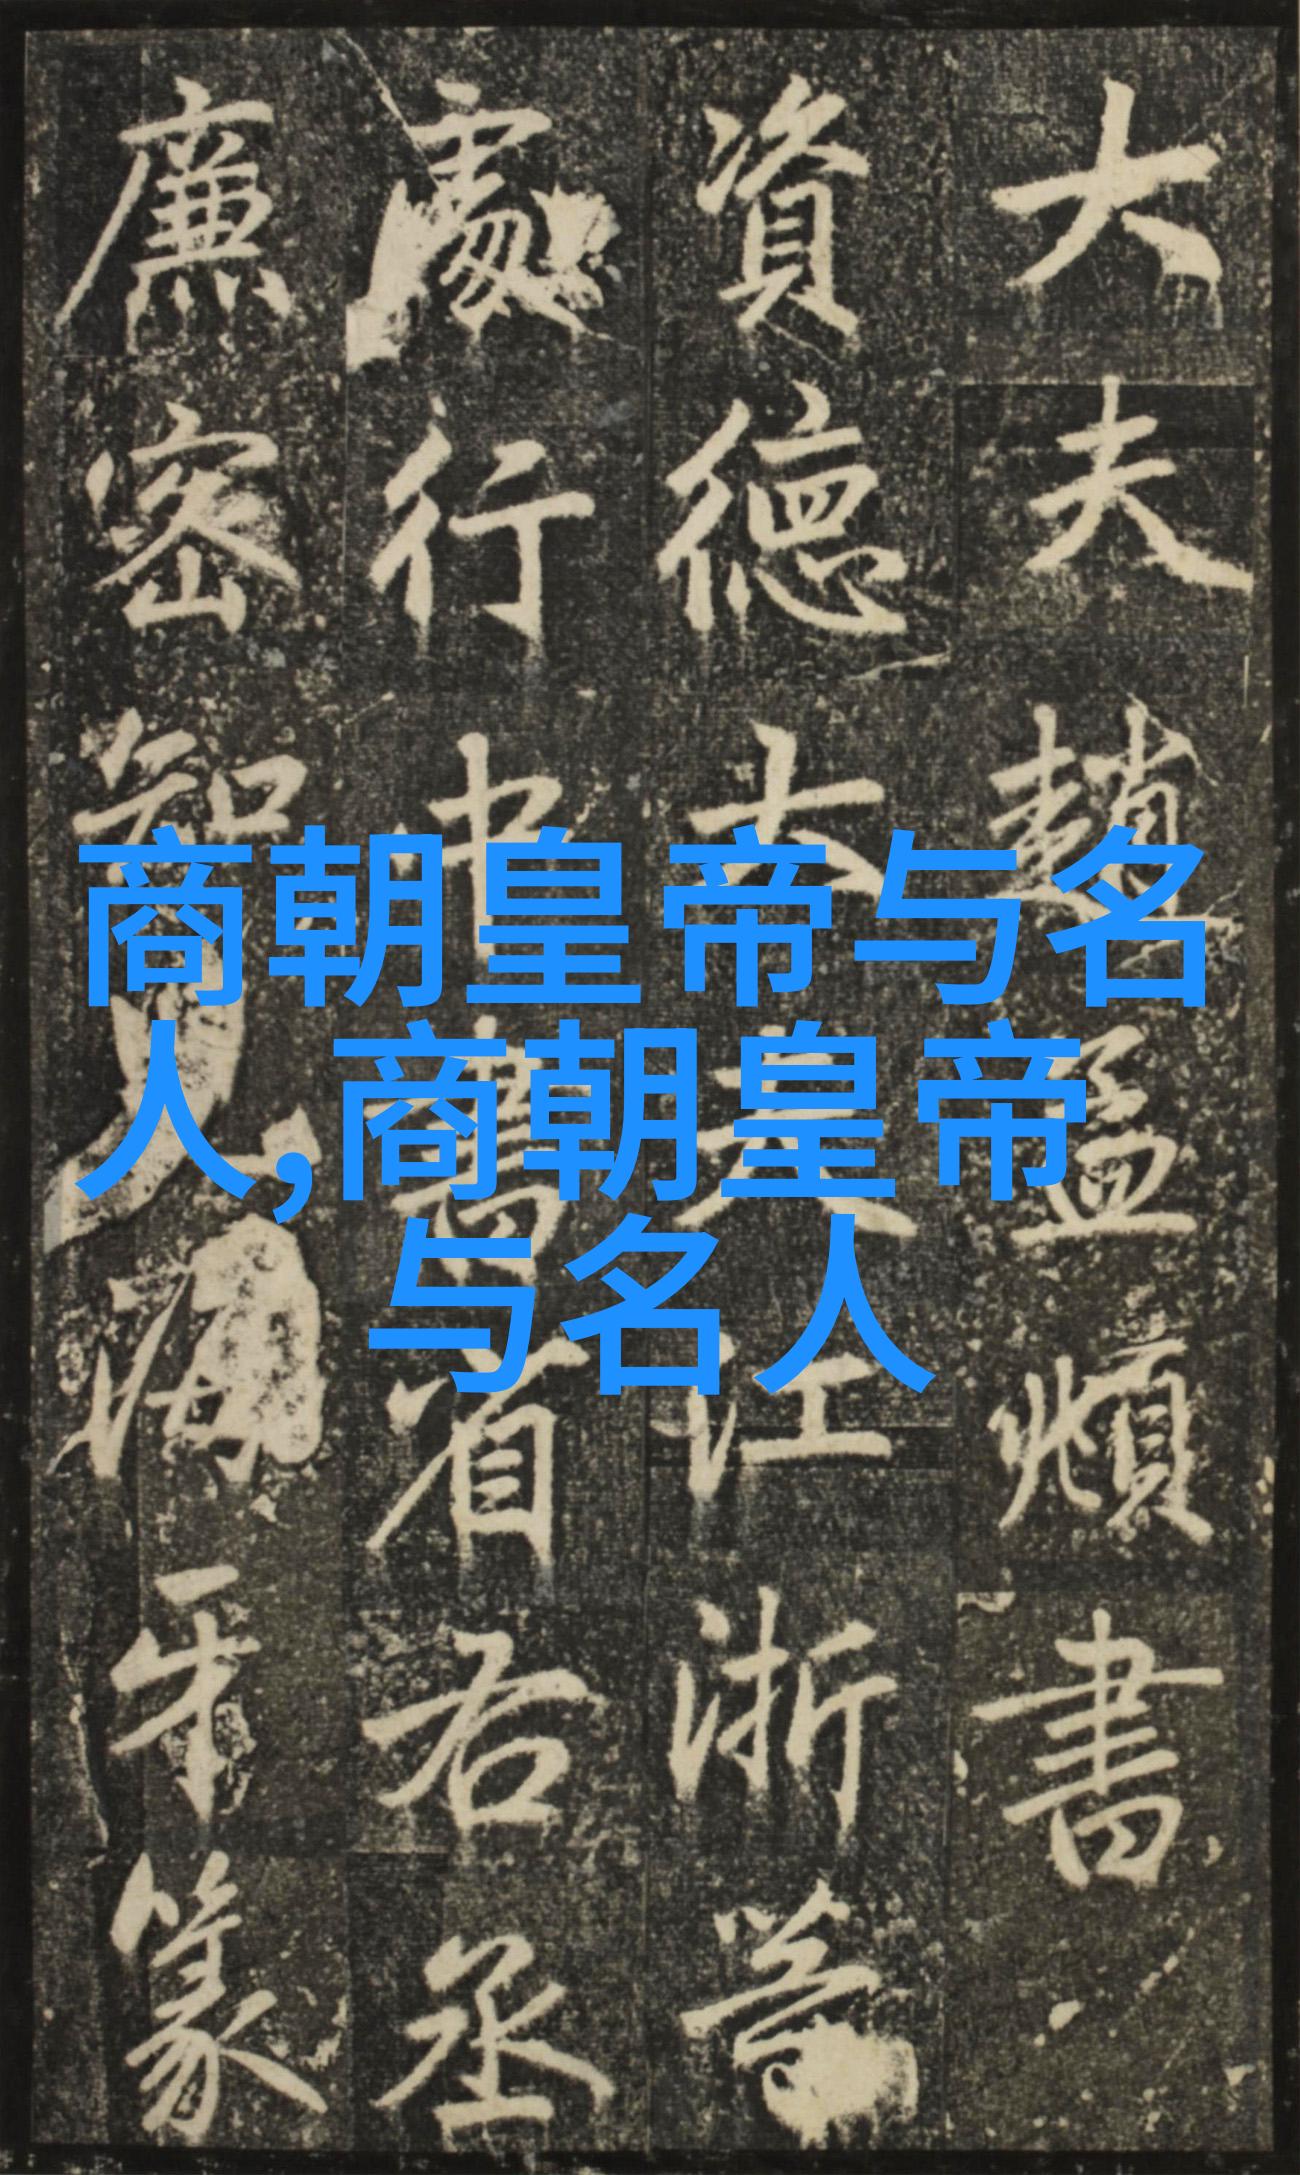 大夫趙孟頫書
資德大夫江浙等
處行中書省右丞
廉密知兒海牙篆
商朝皇帝与名
人,商朝皇帝
与名人